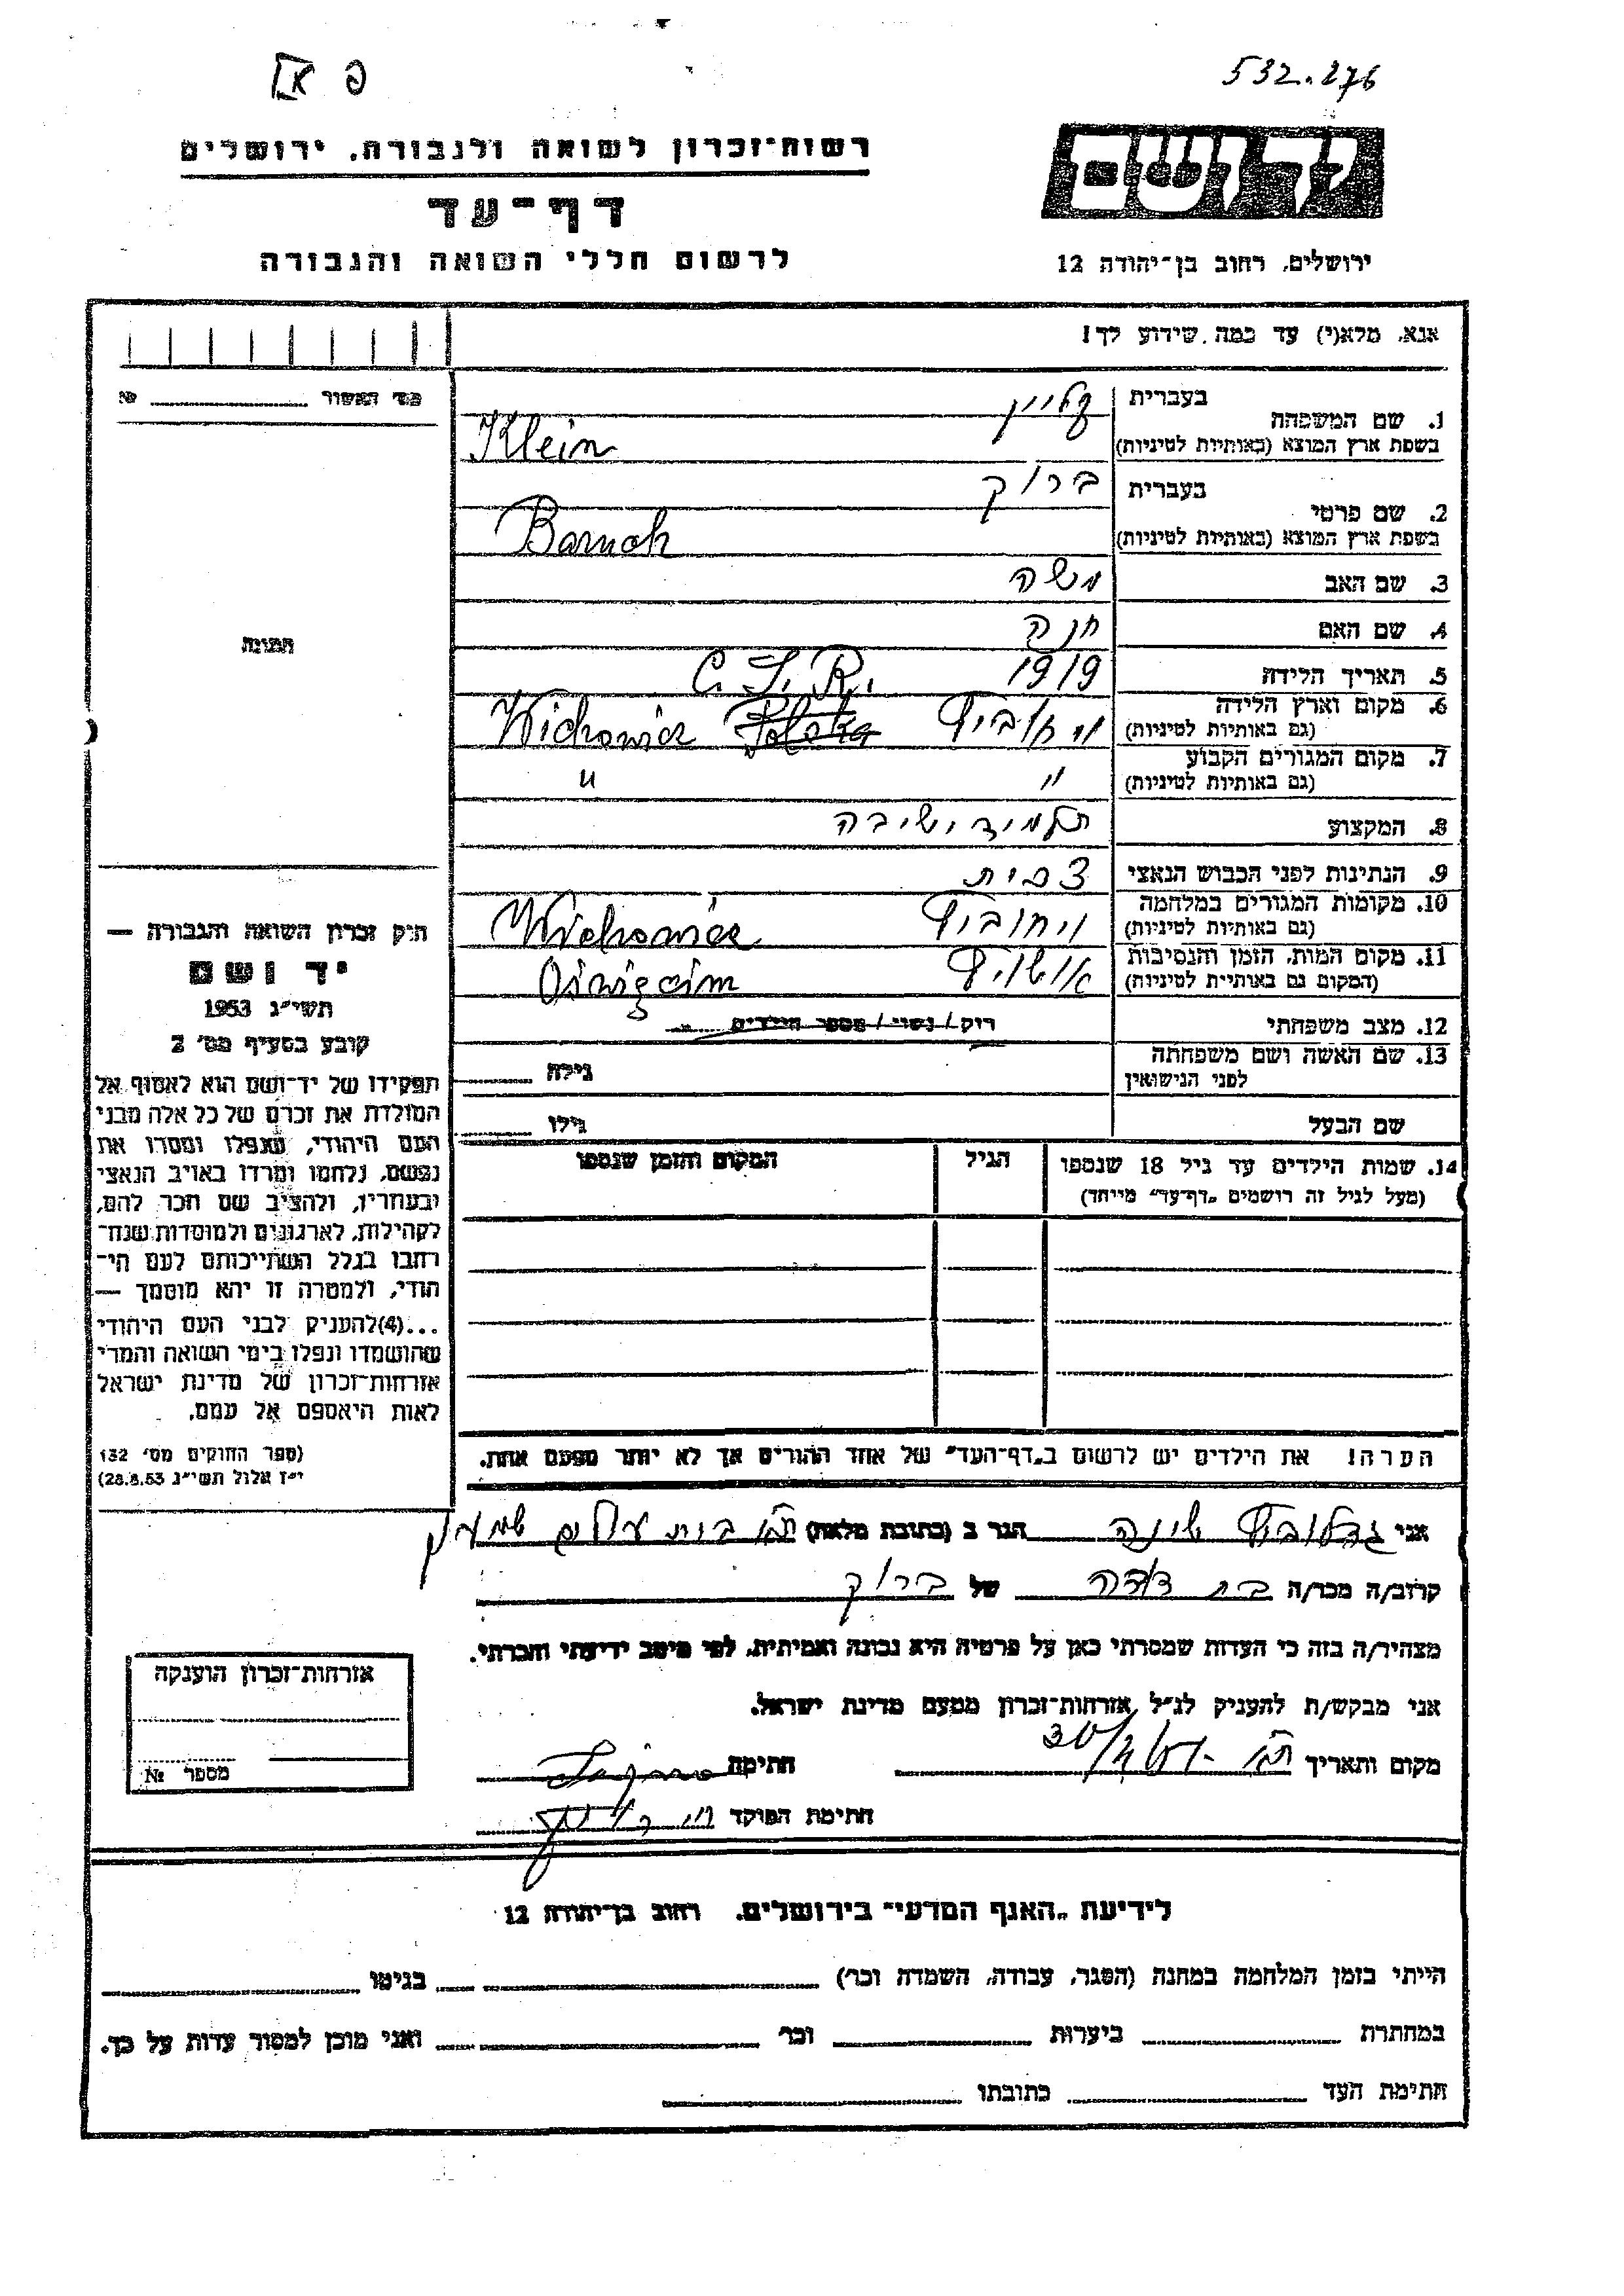 532.276
פ
רשות־זכרון לשואה ולגבורה, ירושלים
דף־עד
לרשום חללי השואה והגבורה
ידושם
ירושלים, רחוב בן־יהודה 12
אנא, מלא(י) עד כמה שידוע לך!
מס' האשור №
1. שם המשפחה
בעברית קליין
בשפת ארץ המוצא (באותיות לטיניות) Klein
2. שם פרטי
בעברית ברוך
בשפת ארץ המוצא (באותיות לטיניות) Baruch
3. שם האב משה
4. שם האם חנה
5. תאריך הלידה 1919 C.S.R.
6. מקום וארץ הלידה (גם באותיות לטיניות) ויחוביץ Wichowicz Polska
7. מקום המגורים הקבוע (גם באותיות לטיניות) " "
8. המקצוע תלמיד ישיבה
9. הנתינות לפני הכבוש הנאצי צכית
10. מקומות המגורים במלחמה (גם באותיות לטיניות) ויחוביץ Wichowicz
11. מקום המות, הזמן והנסיבות (המקום גם באותיית לטיניות) אושויץ
12. מצב משפחתי רוק / נשוי / מספר הילדים
13. שם האשה ושם משפחתה לפני הנישואין גילה
שם הבעל גילו
14. שמות הילדים עד גיל 18 שנספו הגיל המקום והזמן שנספו
(מעל לגיל זה רושמים „דף־עד" מייחד)
הערה! את הילדים יש לרשום ב„דף־העד" של אחד ההורים אך לא יותר מפעם אחת.
תמונה
חוק זכרון השואה והגבורה —
יד ושם
תשי״ג 1953
קובע בסעיף מס׳ 2
תפקידו של יד־ושם הוא לאסוף אל
המולדת את זכרם של כל אלה מבני
העם היהודי, שנפלו ומסרו את
נפשם, נלחמו ומרדו באויב הנאצי
ובעוזריו, ולהציב שם וזכר להם,
לקהילות, לארגונים ולמוסדות שנח־
רחבו בגלל השתייכותם לעם הי־
הודי, ולמטרה זו יהא מוסמך —
...(4)להעניק לבני העם היהודי
שהושמדו ונפלו בימי השואה והמרי
אזרחות־זכרון של מדינת ישראל
לאות היאספם אל עמם.
(ספר החוקים מס׳ 132
י״ז אלול תשי״ג 28.8.53)
אני הגר ב (כתובת מלאה)
קרוב/ה מכר/ה בת דודה של ברוך
מצהיר/ה בזה כי העדות שמסרתי כאן על פרטיה היא נכונה ואמיתית, לפי מיטב ידיעתי והכרתי.
אני מבקש/ת להעניק לנ״ל אזרחות־זכרון מטעם מדינת ישראל.
מקום ותאריך חתימה
חתימת הפוקד
אזרחות־זכרון הוענקה
מספר №
לידיעת „האגף המדעי" בירושלים, רחוב בן־יהודה 12
הייתי בזמן המלחמה במחנה (הסגר, עבודה, השמדה וכו׳) בגיטו
במחתרת ביערות וכו׳ ואני מוכן למסור עדות על כך.
חתימת העד כתובתו